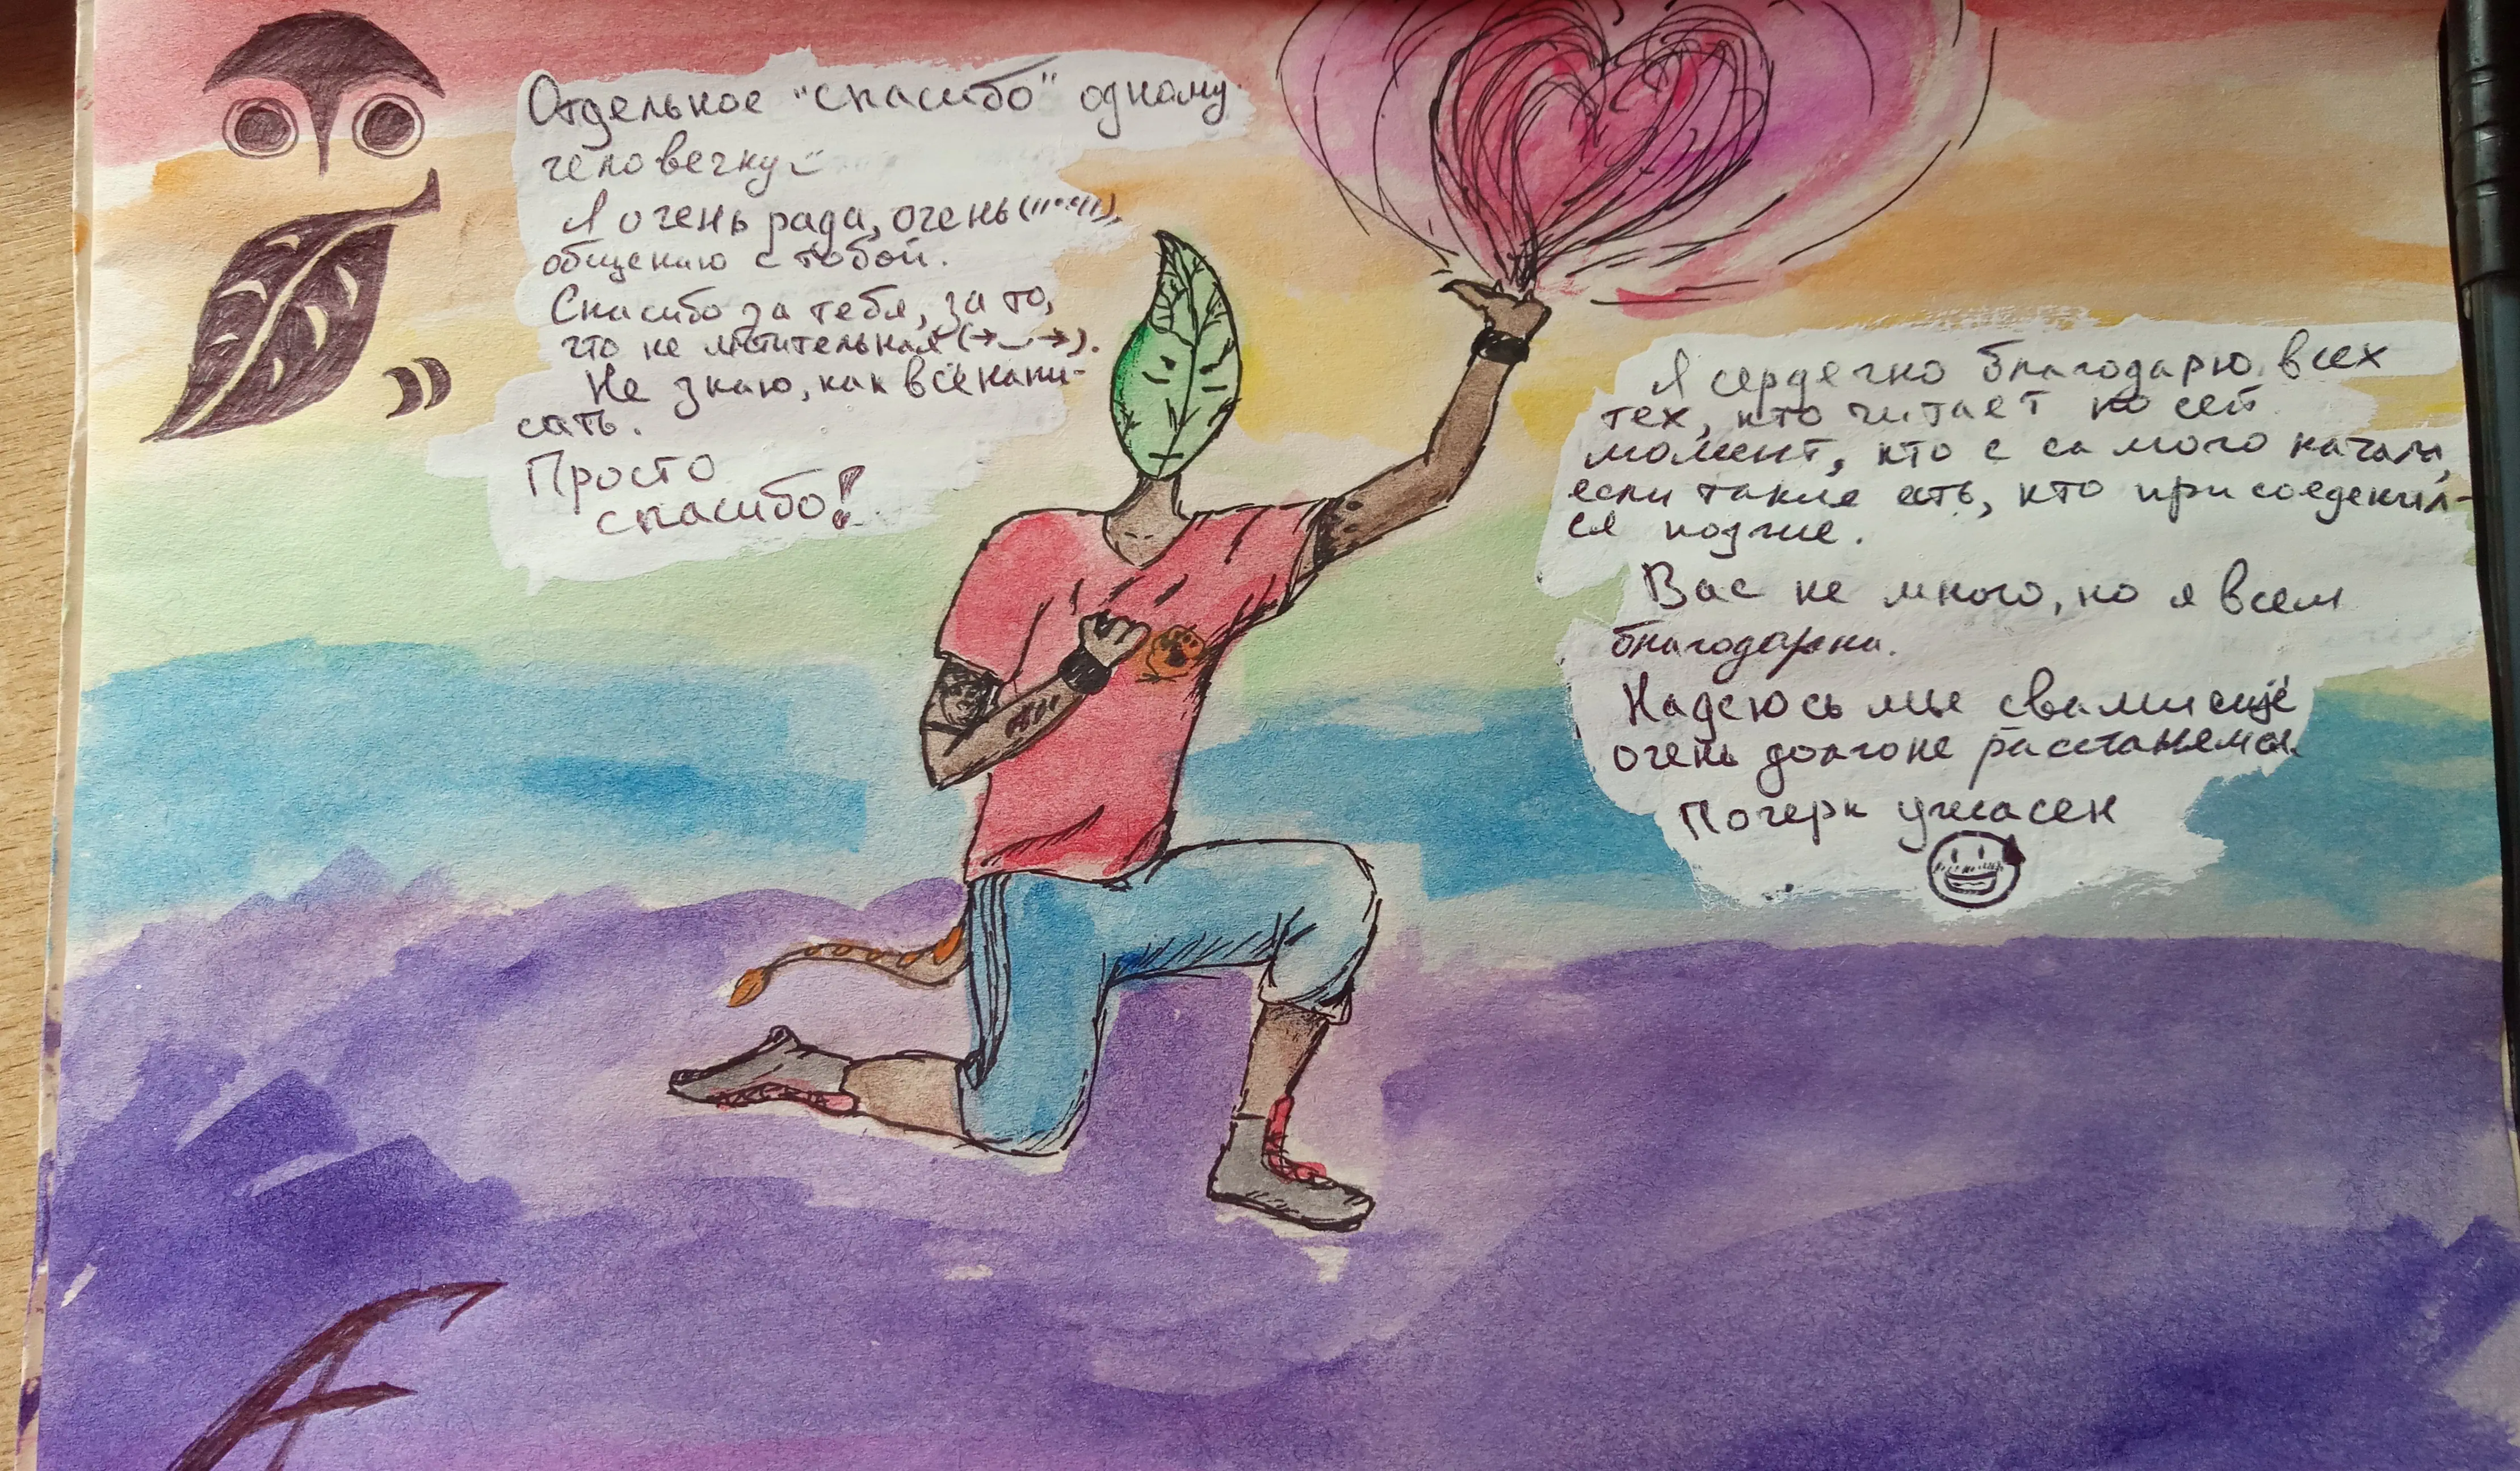 Отдельное "спасибо" одному
человечку
Я очень рада, очень
общению с тобой.
Спасибо за тебя, за то,
что не мстительная
Не знаю, как всё напи-
сать.
Просто
спасибо!
Я сердечно благодарю всех
тех, кто читает по сей
момент, кто с самого начала,
если такие есть, кто присоеденил-
ся позже.
Вас не много, но я всем
благодарна.
Надеюсь мы с вами ещё
очень долго не расстанемся.
Почерк ужасен